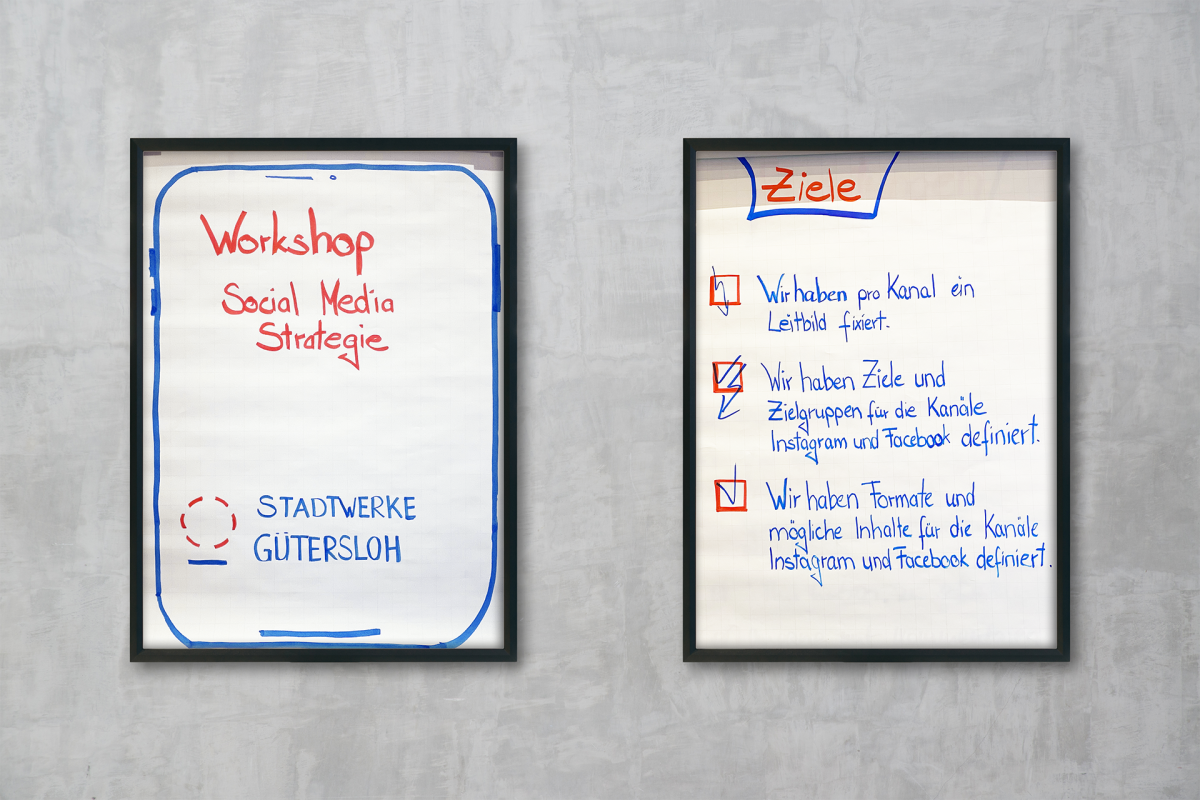 Workshop
Social Media
Strategie
STADTWERKE
GÜTERSLOH
Ziele
Wir haben pro Kanal ein
Leitbild fixiert.
Wir haben Ziele und
Zielgruppen für die Kanäle
Instagram und Facebook definiert.
Wir haben Formate und
mögliche Inhalte für die Kanäle
Instagram und Facebook definiert.